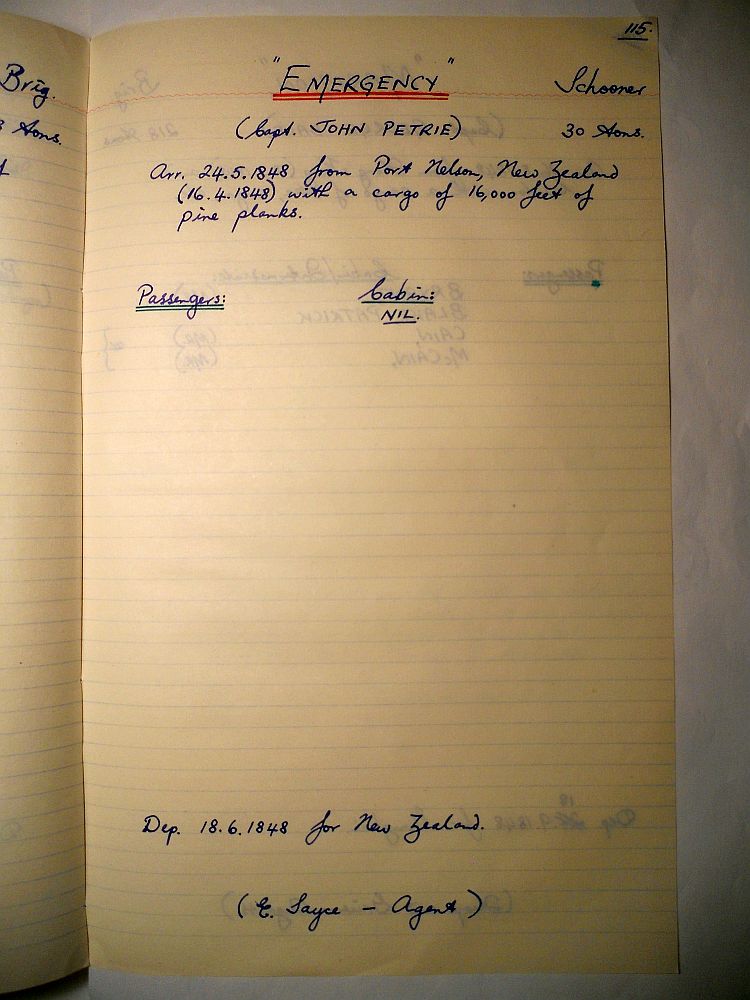 115.
Brig.
"EMERGENCY"
Schooner
Tons.
(Capt. JOHN PETRIE)
30 Tons.
Arr. 24.5.1848 from Port Nelson, New Zealand
(16.4.1848) with a cargo of 16,000 feet of
pine planks.
Passengers:
Cabin:
NIL.
Dep. 18.6.1848 for New Zealand.
(E. Sayce - Agent)